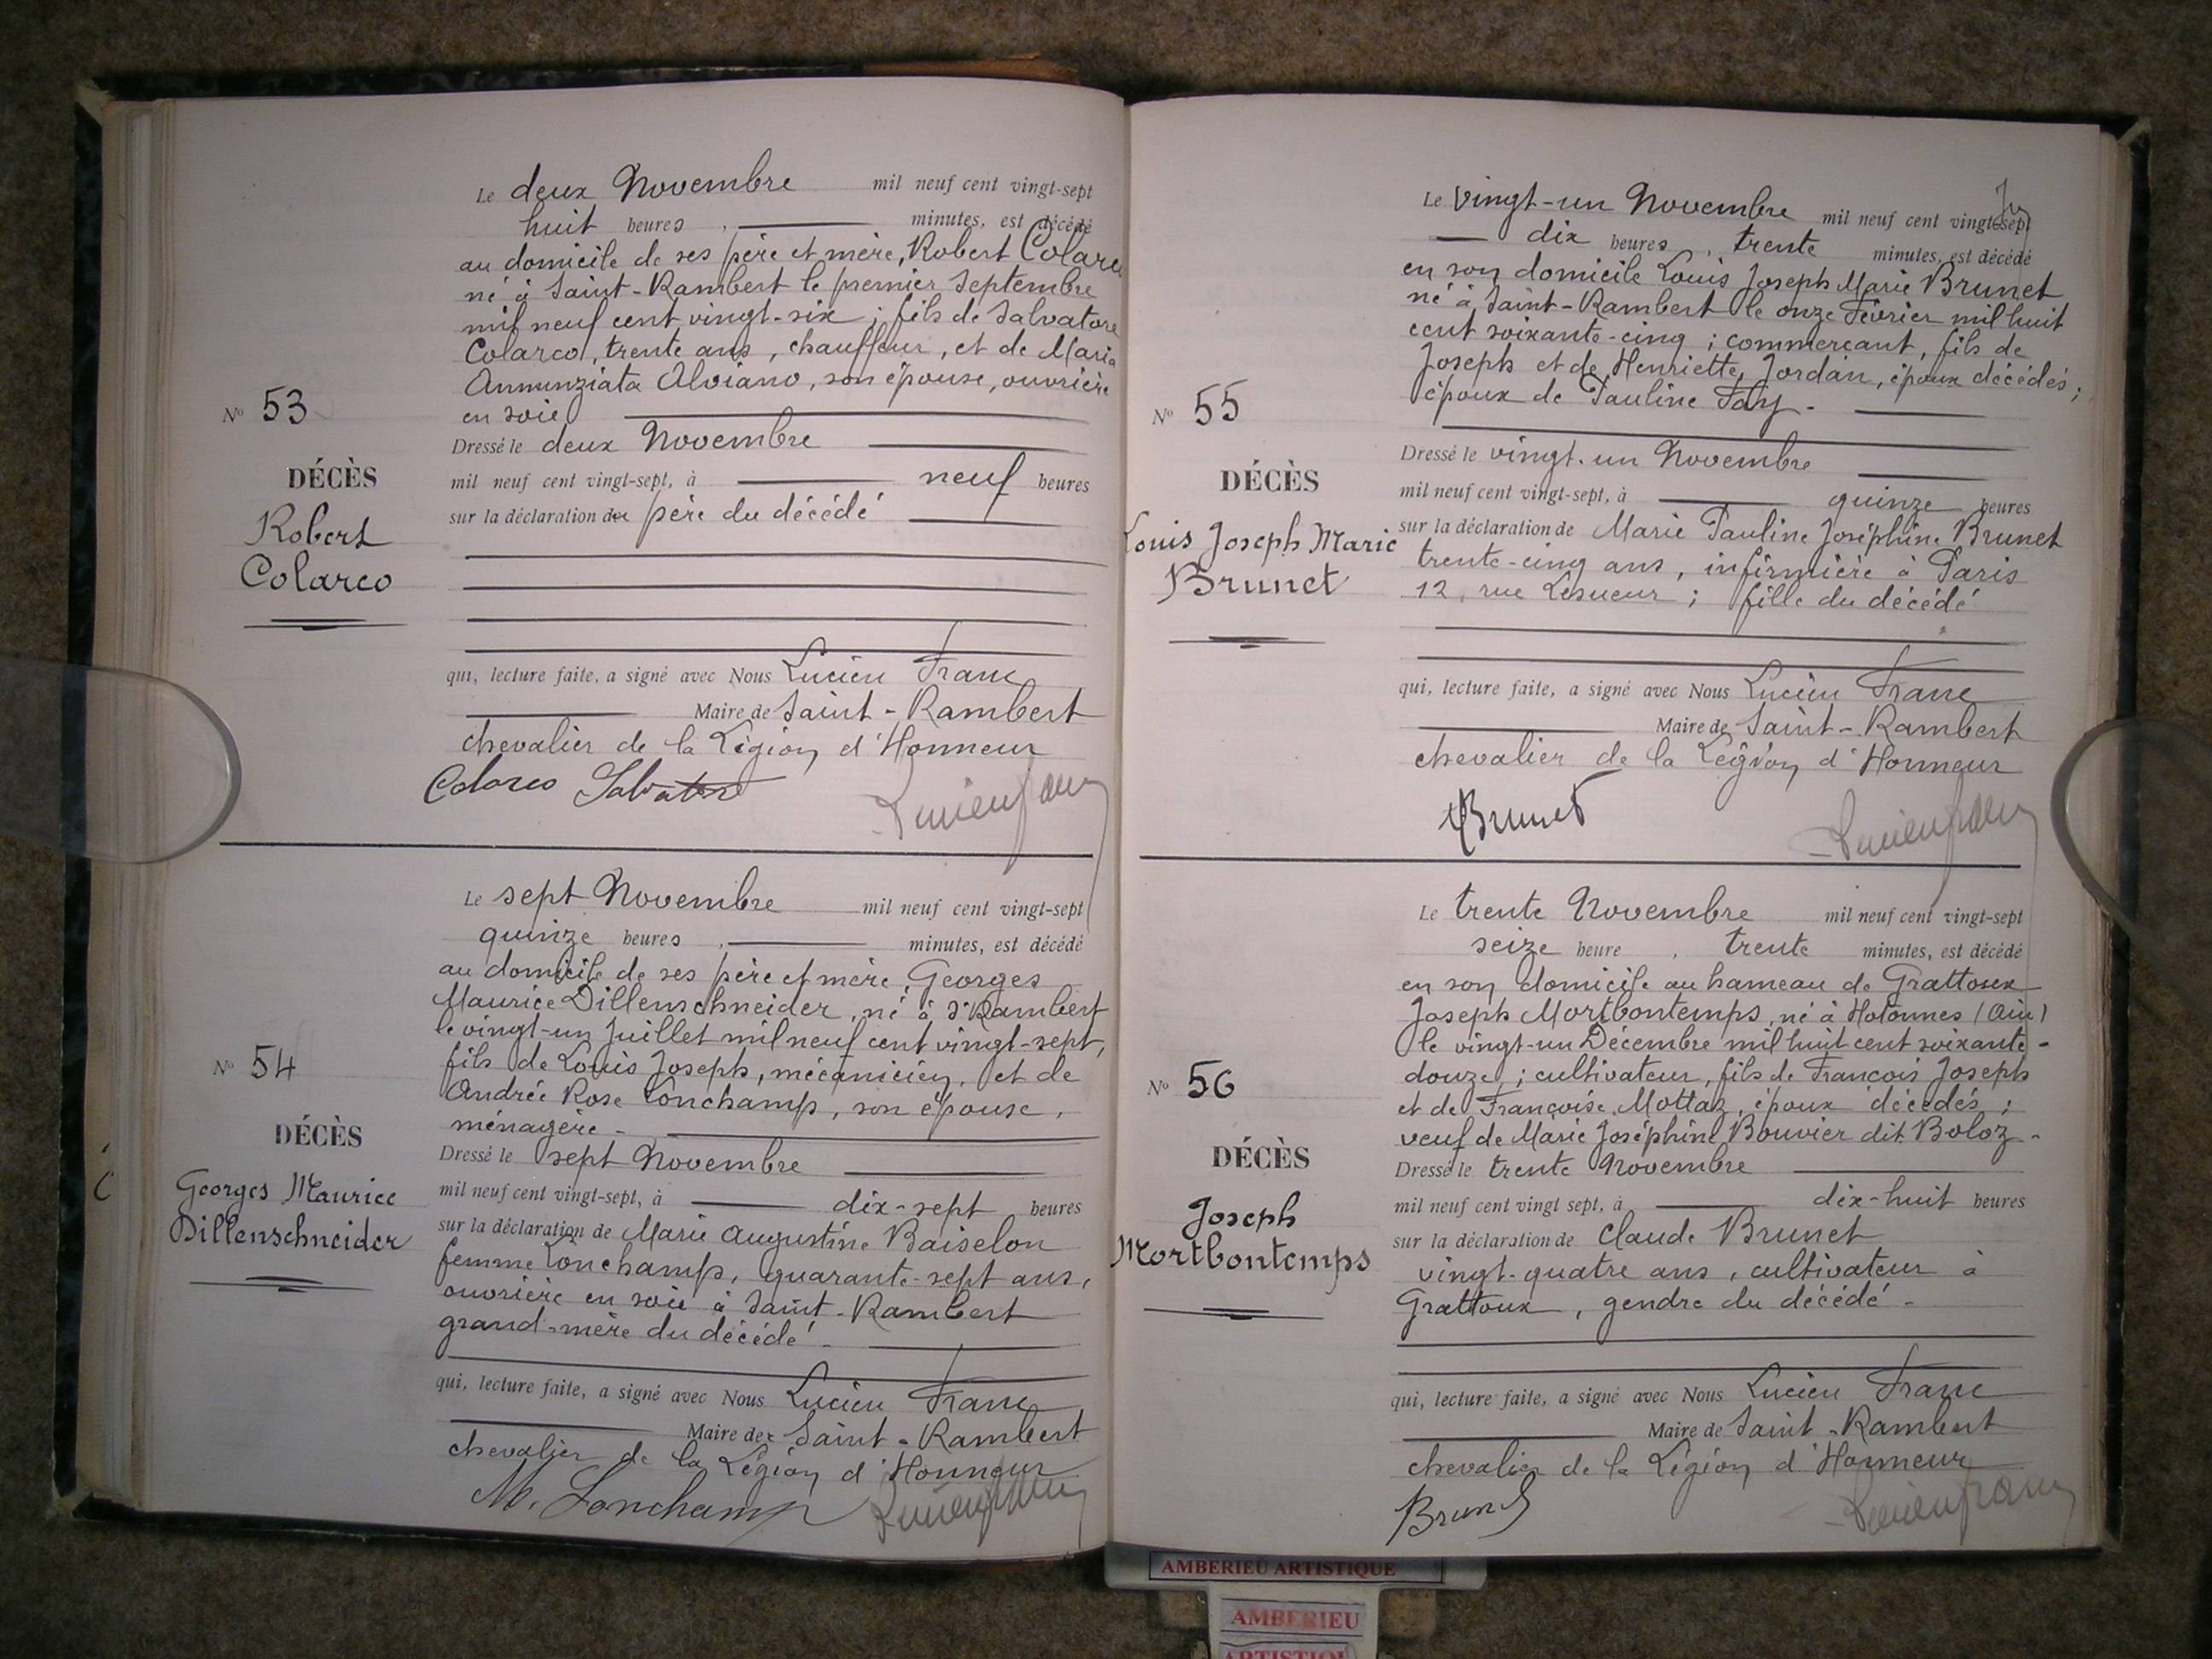 Le deux Novembre mil neuf cent vingt-sept
huit heures, minutes, est décédé
au domicile de ses père et mère, Robert Colarco
né à Saint-Rambert le premier Septembre
mil neuf cent vingt-six ; fils de Salvatore
Colarco, trente ans, chauffeur, et de Maria
Annunziata Alviano, son épouse, ouvrière
en soie
N° 53
DÉCÈS
Robert
Colarco
Dressé le deux Novembre
mil neuf cent vingt-sept, à neuf heures
sur la déclaration du père du décédé
qui, lecture faite, a signé avec Nous Lucien Franc
Maire de Saint-Rambert
chevalier de la Légion d'Honneur
Colarco Salvatore
Lucien Franc
Le sept Novembre mil neuf cent vingt-sept
quinze heures, minutes, est décédé
au domicile de ses père et mère, Georges
Maurice Dillenschneider, né à St Rambert
le vingt-un Juillet mil neuf cent vingt-sept,
fils de Louis Joseph, mécanicien, et de
Andrée Rose Lonchamp, son épouse,
ménagère -
N° 54
DÉCÈS
Georges Maurice
Dillenschneider
Dressé le sept Novembre
mil neuf cent vingt-sept, à dix-sept heures
sur la déclaration de Marie Augustine Baiselon
femme Lonchamp, quarante-sept ans,
ouvrière en soie à Saint-Rambert
grand-mère du décédé -
qui, lecture faite, a signé avec Nous Lucien Franc
Maire de Saint-Rambert
chevalier de la Légion d'Honneur
M. Lonchamp
Lucien Franc
Le vingt-un Novembre mil neuf cent vingt-sept
dix heures, trente minutes, est décédé
en son domicile Louis Joseph Marie Brunet
né à Saint-Rambert le onze Février mil huit
cent soixante-cinq ; commerçant, fils de
Joseph et de Henriette Jordan, époux décédés ;
époux de Pauline Fay -
N° 55
DÉCÈS
Louis Joseph Marie
Brunet
Dressé le vingt-un Novembre
mil neuf cent vingt-sept, à quinze heures
sur la déclaration de Marie Pauline Joséphine Brunet
trente-cinq ans, infirmière à Paris
12, rue Lesueur ; fille du décédé
qui, lecture faite, a signé avec Nous Lucien Franc
Maire de Saint-Rambert
chevalier de la Légion d'Honneur
Brunet
Lucien Franc
Le trente Novembre mil neuf cent vingt-sept
seize heure, trente minutes, est décédé
en son domicile au hameau de Grattoux
Joseph Mortbontemps, né à Hotonnes (Ain)
le vingt-un Décembre mil huit cent soixante-
douze ; cultivateur, fils de François Joseph
et de Françoise Mottaz, époux décédés ;
veuf de Marie Joséphine Bouvier dit Boloz -
N° 56
DÉCÈS
Joseph
Mortbontemps
Dressé le trente Novembre
mil neuf cent vingt sept, à dix-huit heures
sur la déclaration de Claude Brunet
vingt-quatre ans, cultivateur à
Grattoux, gendre du décédé -
qui, lecture faite, a signé avec Nous Lucien Franc
Maire de Saint-Rambert
chevalier de la Légion d'Honneur
Brunet
Lucien Franc
AMBERIEU ARTISTIQUE
AMBERIEU
ARTISTIQUE